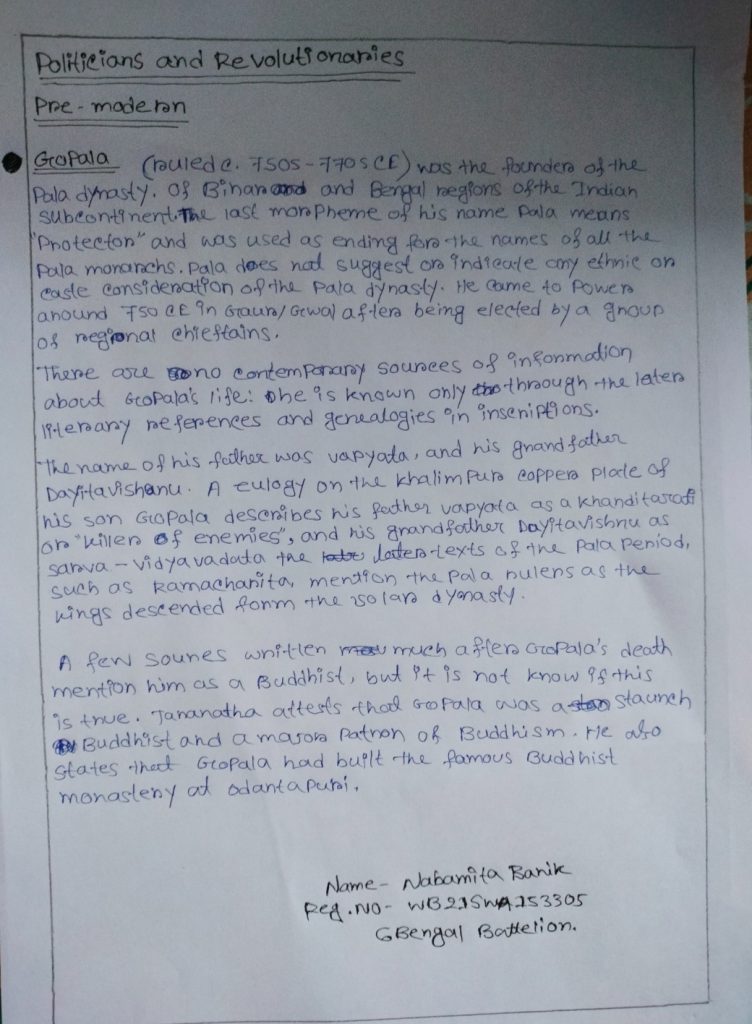 Politicians and Revolutionaries
Pre-modern
Gopala (ruled c. 750s-770s CE) was the founder of the
Pala dynasty. Of Bihar and and Bengal regions of the Indian
subcontinent. The last morpheme of his name Pala means
"Protector" and was used as ending for the names of all the
Pala monarchs. Pala does not suggest or indicate any ethnic or
caste consideration of the Pala dynasty. He came to Power
around 750 CE in Gaur/Gewal after being elected by a group
of regional chieftains.
There are no contemporary sources of information
about Gopala's life: he is known only through the later
literary references and genealogies in inscriptions.
The name of his father was vapyata, and his grandfather
Dayitavishanu. A eulogy on the Khalimpur copper plate of
his son Gopala describes his father vapyata as a Khanditarati
or "killer of enemies", and his grandfather Dayitavishnu as
sarva - vidyavadata the later texts of the Pala Period,
such as Ramacharita, mention the Pala rulers as the
kings descended form the solar dynasty.
A few soures written much after Gopala's death
mention him as a Buddhist, but it is not know if this
is true. Taranatha attests that Gopala was a staunch
Buddhist and a masor Patron of Buddhism. He also
states that Gopala had built the famous Buddhist
monastery at Odantapuri.
Name- Nabamita Banik
Reg.No- WB21SWA153305
6Bengal Battelion.